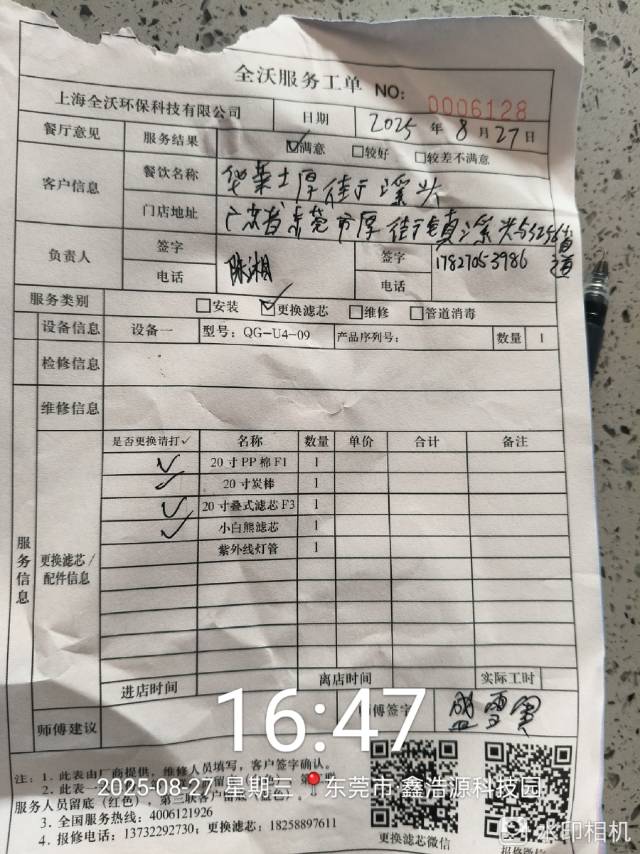 全沃服务工单 NO: 0006128
上海全沃环保科技有限公司 日期 2025 年 8 月 27 日
餐厅意见 服务结果 ☑满意 □较好 □较差不满意
客户信息 餐饮名称 华莱士厚街溪头
门店地址 广东省东莞市厚街镇溪头
负责人 签字 陈湘 签字 17827053986
电话 电话
服务类别 □安装 ☑更换滤芯 □维修 □管道消毒
设备信息 设备一 型号: QG-U4-09 产品序列号: 数量 1
检修信息
维修信息
服务信息
更换滤芯/配件信息
是否更换请打✓ 名称 数量 单价 合计 备注
✓ 20寸PP棉F1 1
✓ 20寸炭棒 1
✓ 20寸叠式滤芯F3 1
✓ 小白熊滤芯 1
紫外线灯管 1
进店时间 离店时间 实际工时
师傅建议 师傅签字
16:47
2025-08-27 星期三 东莞市·鑫浩源科技园
注: 1. 此表由厂商提供, 维修人员填写, 客户签字确认。
2. 此表一
服务人员留底 (红色), 第三联客户留底
3. 全国服务热线: 4006121926
4. 报修电话: 13732292730; 更换滤芯: 18258897611
更换滤芯微信 报修微信
水印相机